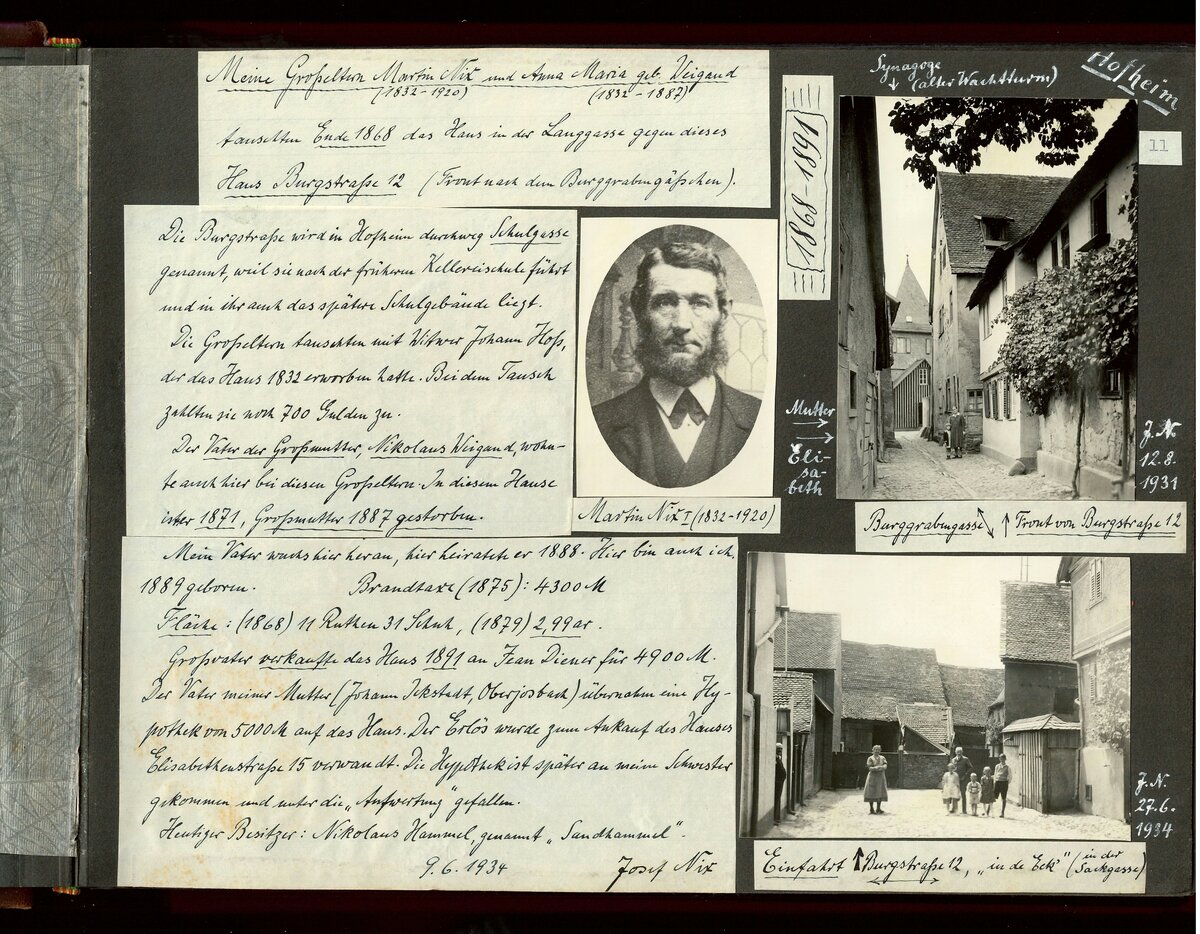 Meine Großeltern Martin Nix und Anna Maria geb. Weigand
(1832-1920) (1832-1887)
tauschten Ende 1868 das Haus in der Langgasse gegen dieses
Haus Burgstraße 12 (Front nach dem Burggrabengäßchen).
Die Burgstraße wird in Hofheim durchweg Schulgasse
genannt, weil sie nach der früheren Kellereischule führt
und in ihr auch das spätere Schulgebäude liegt.
Die Großeltern tauschten mit Witwer Johann Hoß,
der das Haus 1832 erworben hatte. Bei dem Tausch
zahlten sie noch 700 Gulden zu.
Der Vater der Großmutter, Nikolaus Weigand, wohn-
te auch hier bei diesen Großeltern. In diesem Hause
ist er 1871, Großmutter 1887 gestorben.
Mein Vater wuchs hier heran, hier heiratete er 1888. Hier bin auch ich
1889 geboren. Brandtaxe (1875): 4300 M
Fläche: (1868) 11 Ruthen 31 Schuh, (1879) 2,99 ar.
Großvater verkaufte das Haus 1891 an Jean Diener für 4900 M.
Der Vater meiner Mutter (Johann Ickstadt, Oberjosbach) übernahm eine Hy-
pothek von 5000 M auf das Haus. Der Erlös wurde zum Ankauf des Hauses
Elisabethenstraße 15 verwandt. Die Hypothek ist später an meine Schwester
gekommen und unter die „Aufwertung" gefallen.
Heutiger Besitzer: Nikolaus Hammel, genannt „Sandhammel".
9.6.1934 Josef Nix
Martin Nix I (1832-1920)
1868-1891
Synagoge
↓ (alter Wachtturm)
Hofheim
11
Mutter
→
→
Eli-
sa-
beth
J.N.
12.8.
1931
Burggrabengasse ↑ Front von Burgstraße 12
J.N.
27.6.
1934
Einfahrt ↑ Burgstraße 12, „in de Eck" (in der
Sackgasse)